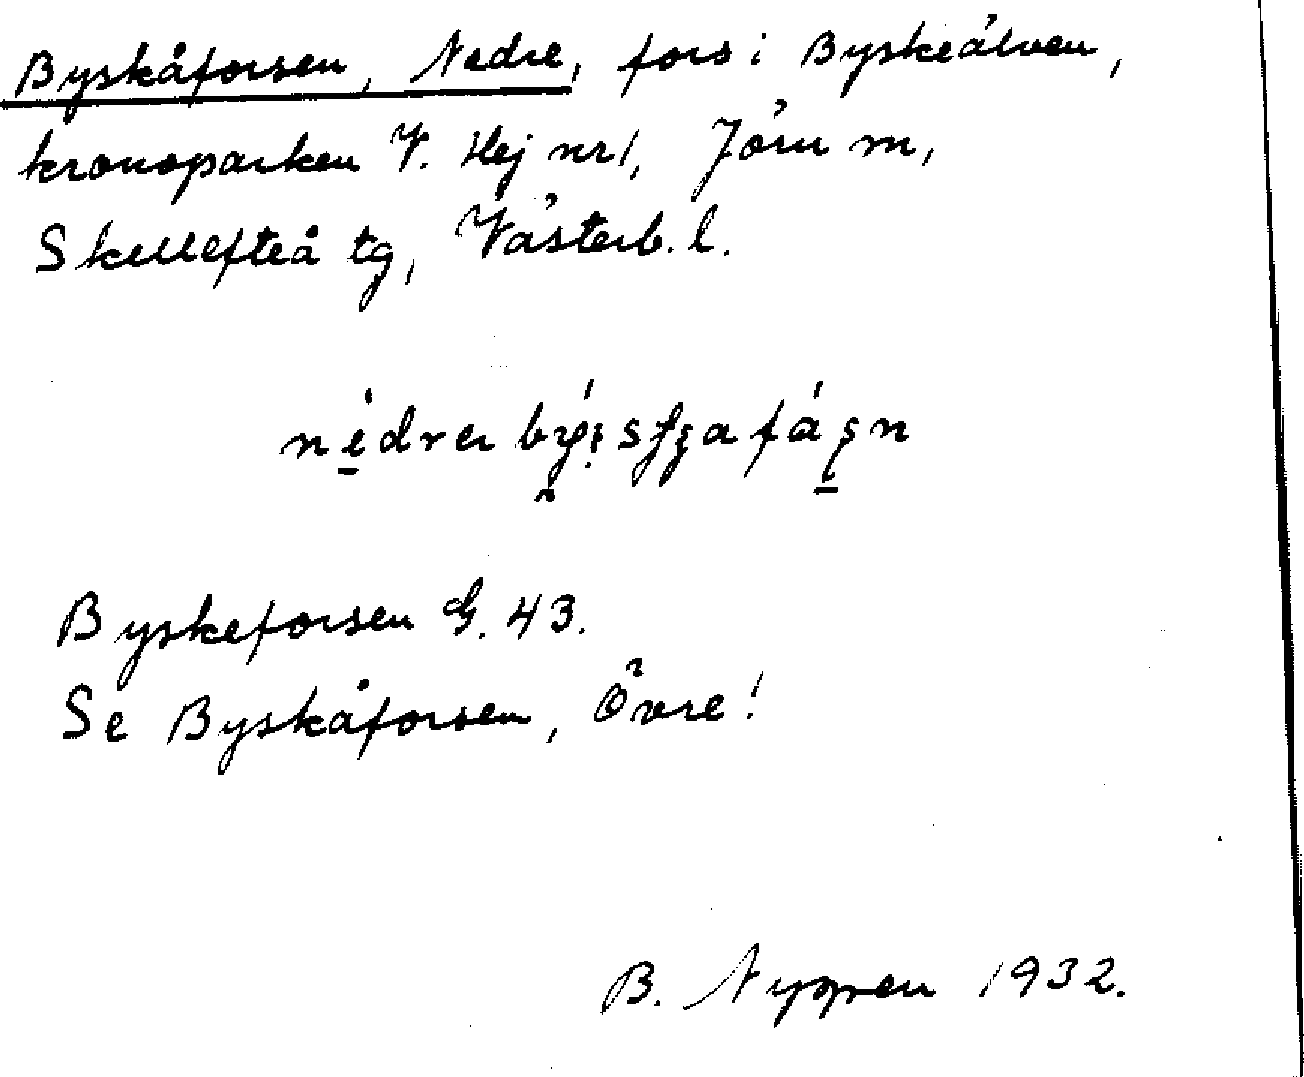 Byskåforsen, Nedre, fors i Byskeälven,
kronoparken V. Hej nr 1, Jörn sn,
Skellefteå tg, Västerb. l.
Byskeforsen G. 43.
Se Byskåforsen, Övre!
B. 1932.